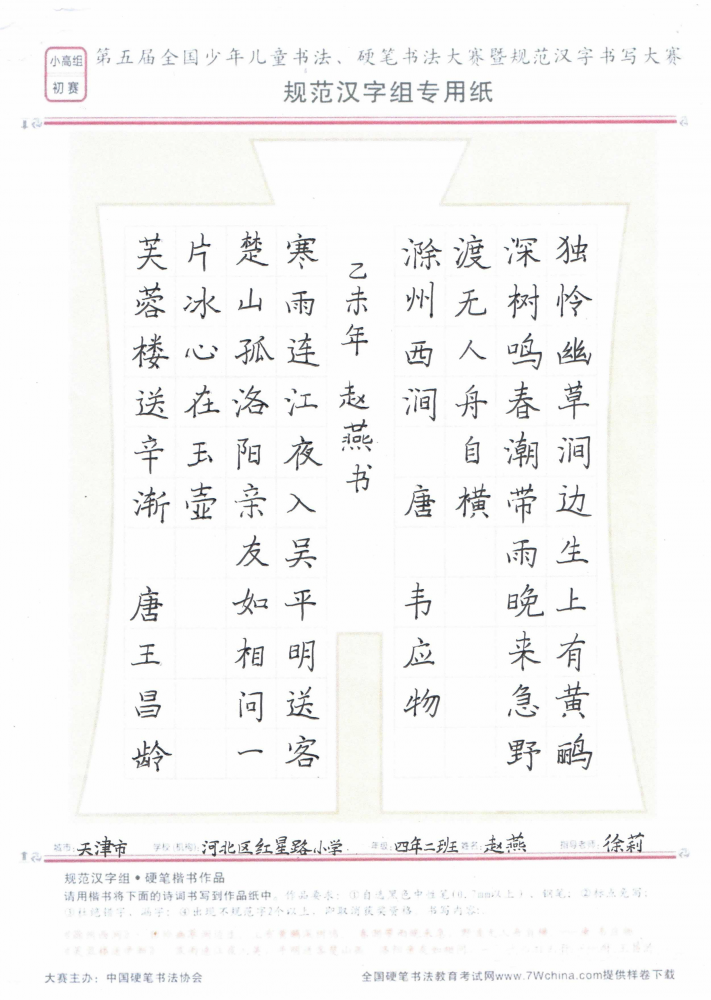 小高组
初赛
第五届全国少年儿童书法、硬笔书法大赛暨规范汉字书写大赛
规范汉字组专用纸
独怜幽草涧边生上有黄鹂
深树鸣春潮带雨晚来急野
渡无人舟自横
滁州西涧 唐 韦应物
乙未年 赵燕书
寒雨连江夜入吴平明送客
楚山孤洛阳亲友如相问一
片冰心在玉壶
芙蓉楼送辛渐 唐王昌龄
城市: 天津市 学校(机构): 河北区红星路小学 年级: 四年二班 姓名: 赵燕 指导老师: 徐莉
规范汉字组·硬笔楷书作品
请用楷书将下面的诗词书写到作品纸中。作品要求:①自选黑色中性笔(0.7mm以上)、钢笔;②标点免写;
③杜绝错字、漏字;④出现不规范字2个以上,即取消获奖资格。书写内容:
大赛主办:中国硬笔书法协会
全国硬笔书法教育考试网www.7Wchina.com提供样卷下载